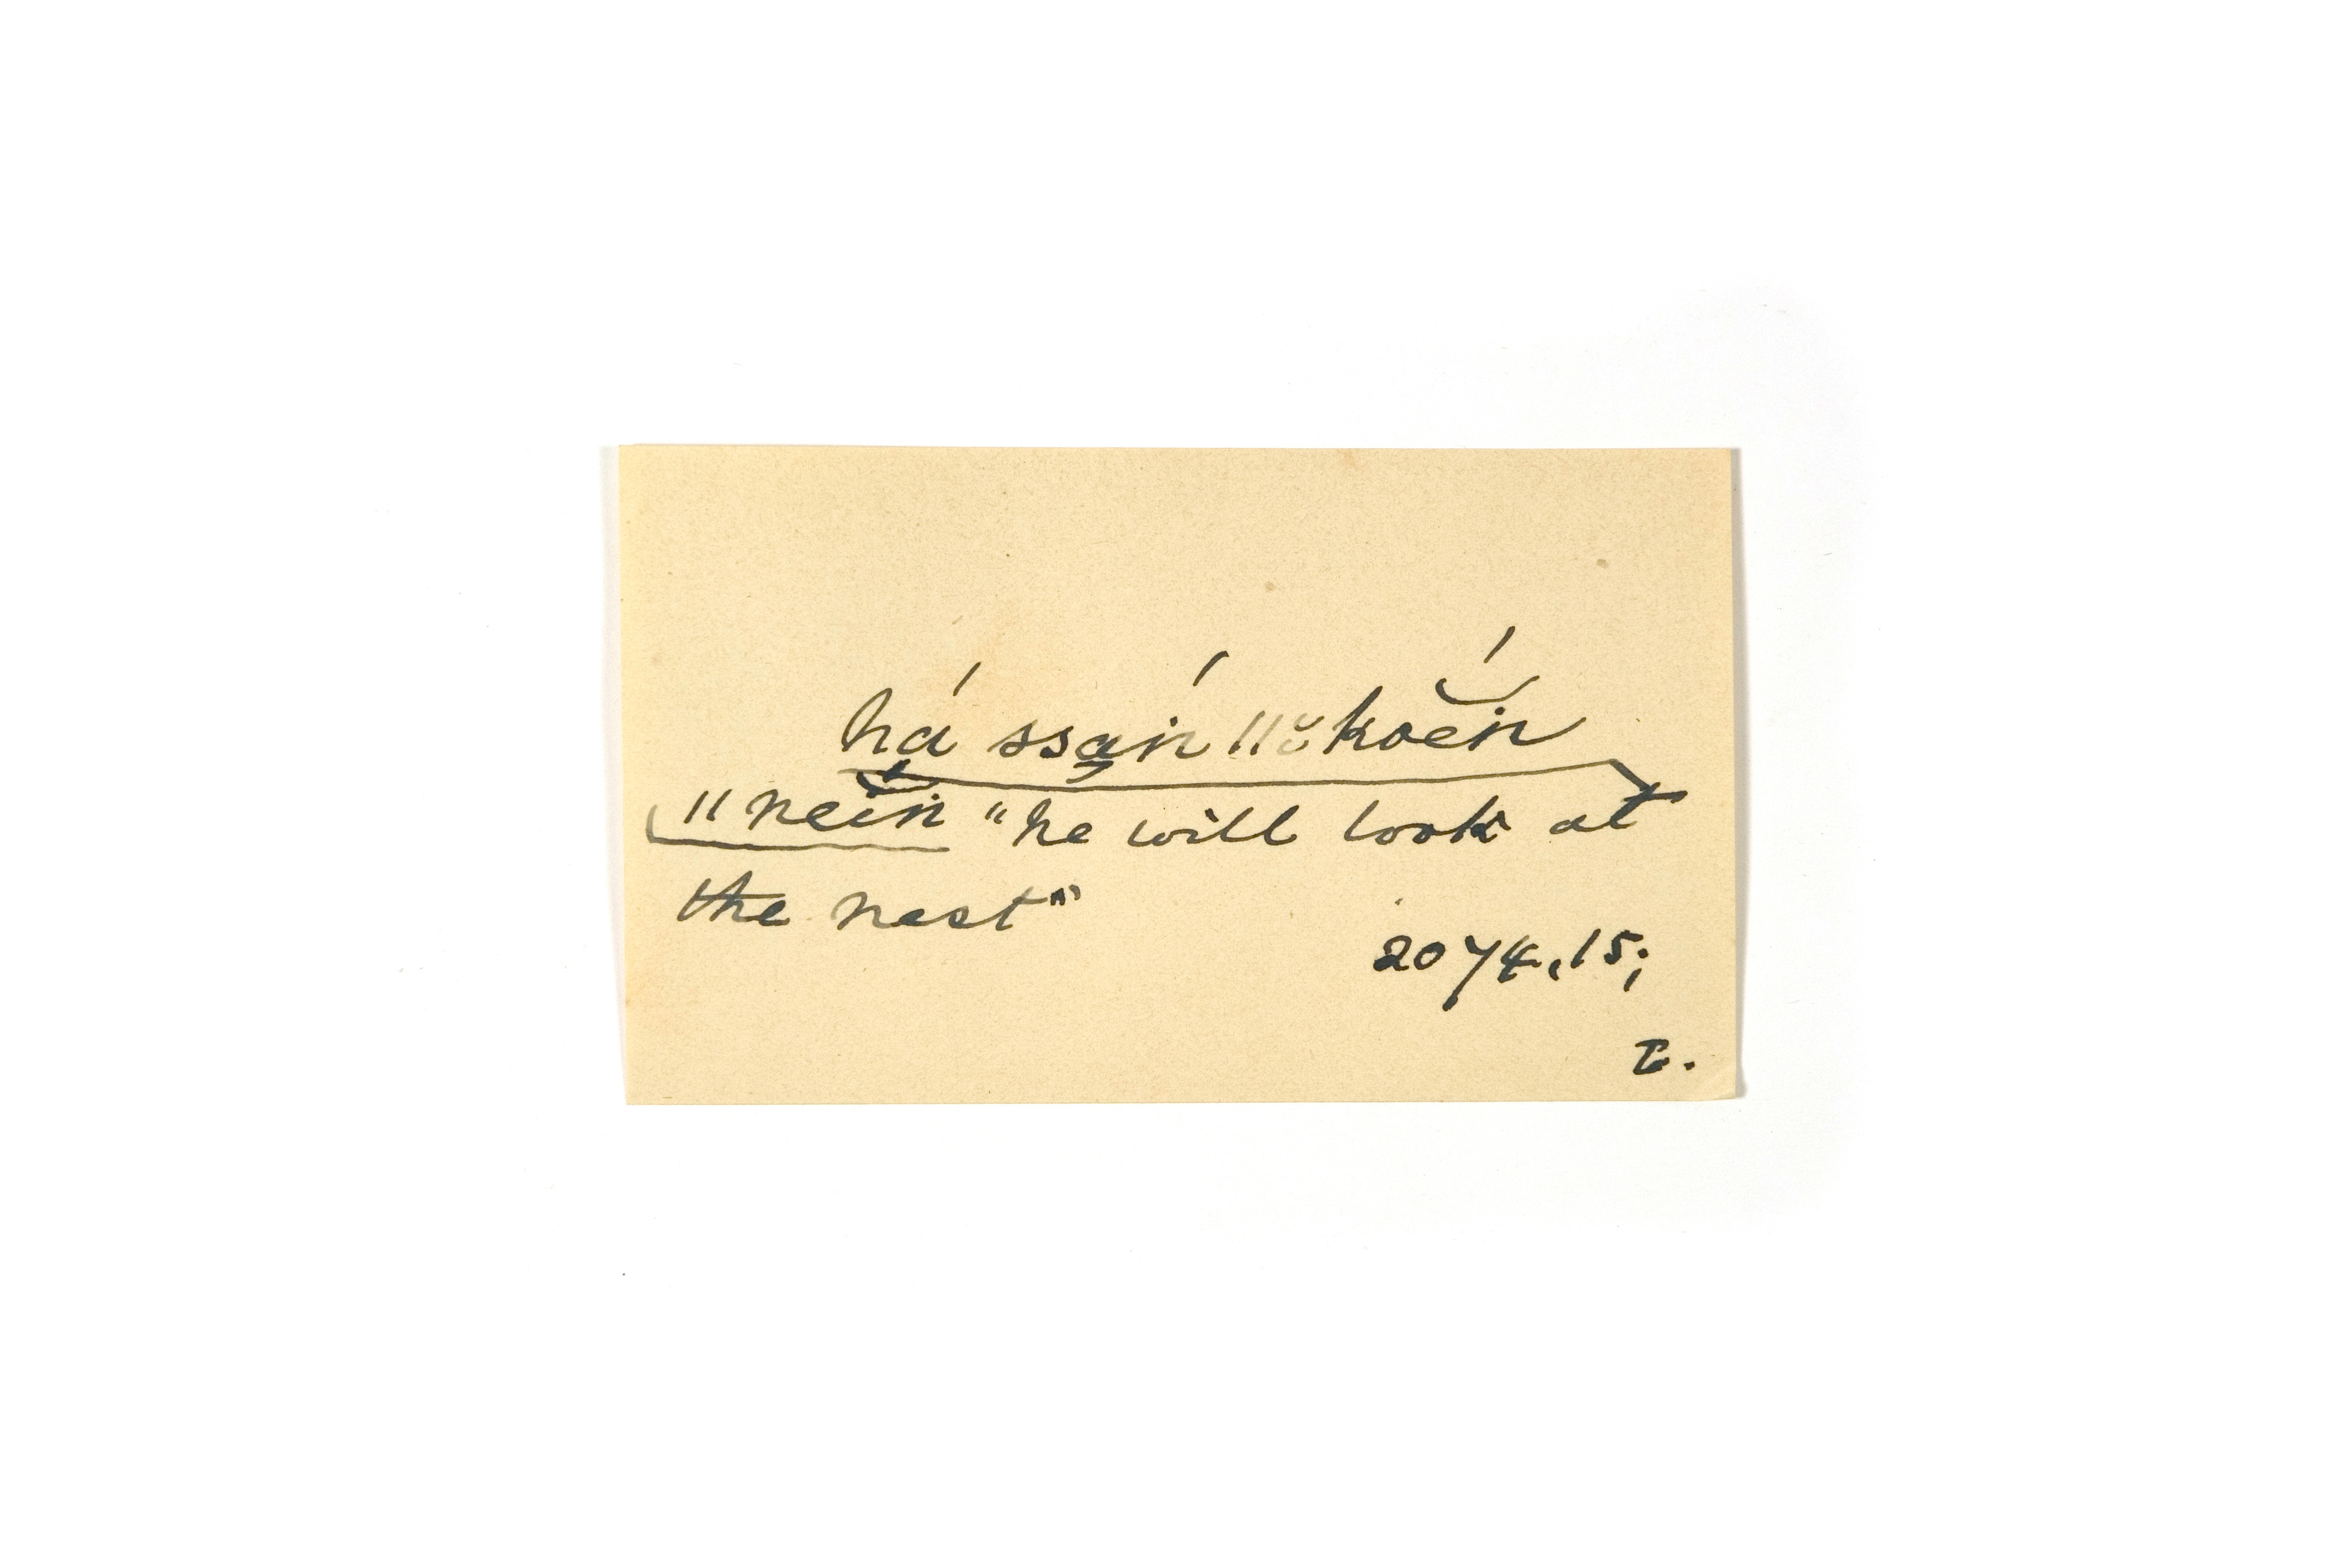 há ssa̦ṅ ǁŏkoĕ́ṅ
ǁneĭṅ "he will look at
the nest"
2074,15;